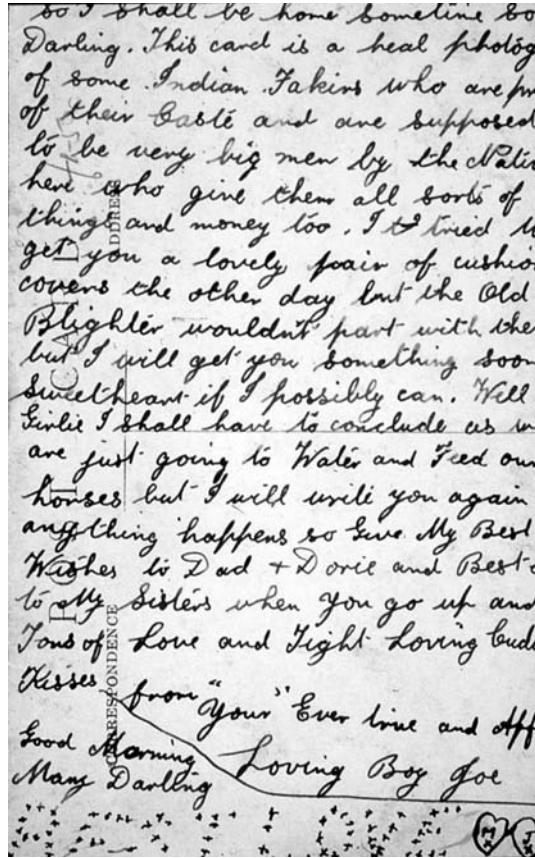 so I shall be home sometime so
Darling. This card is a heal photog
of some Indian Fakirs who are pr
of their Caste and are supposed
to be very big men by the Nativ
here who give them all sorts of
things and money too. I tried
get you a lovely pair of cushio
covers the other day but the Old
Blighter wouldn't part with the
but I will get you something soon
Sweetheart if I possibly can. Well
Girlie I shall have to conclude as w
are just going to Water and Feed our
horses but I will write you again
anything happens so Give My Best
Wishes to Dad + Dorie and Best
to My Sisters when you go up and
Tons of Love and Tight Loving Cud
Kisses from "Your" Ever true and Aff
Loving Boy Joe
Good Morning
Many Darling
M J
POST CARD
CORRESPONDENCE
ADDRESS